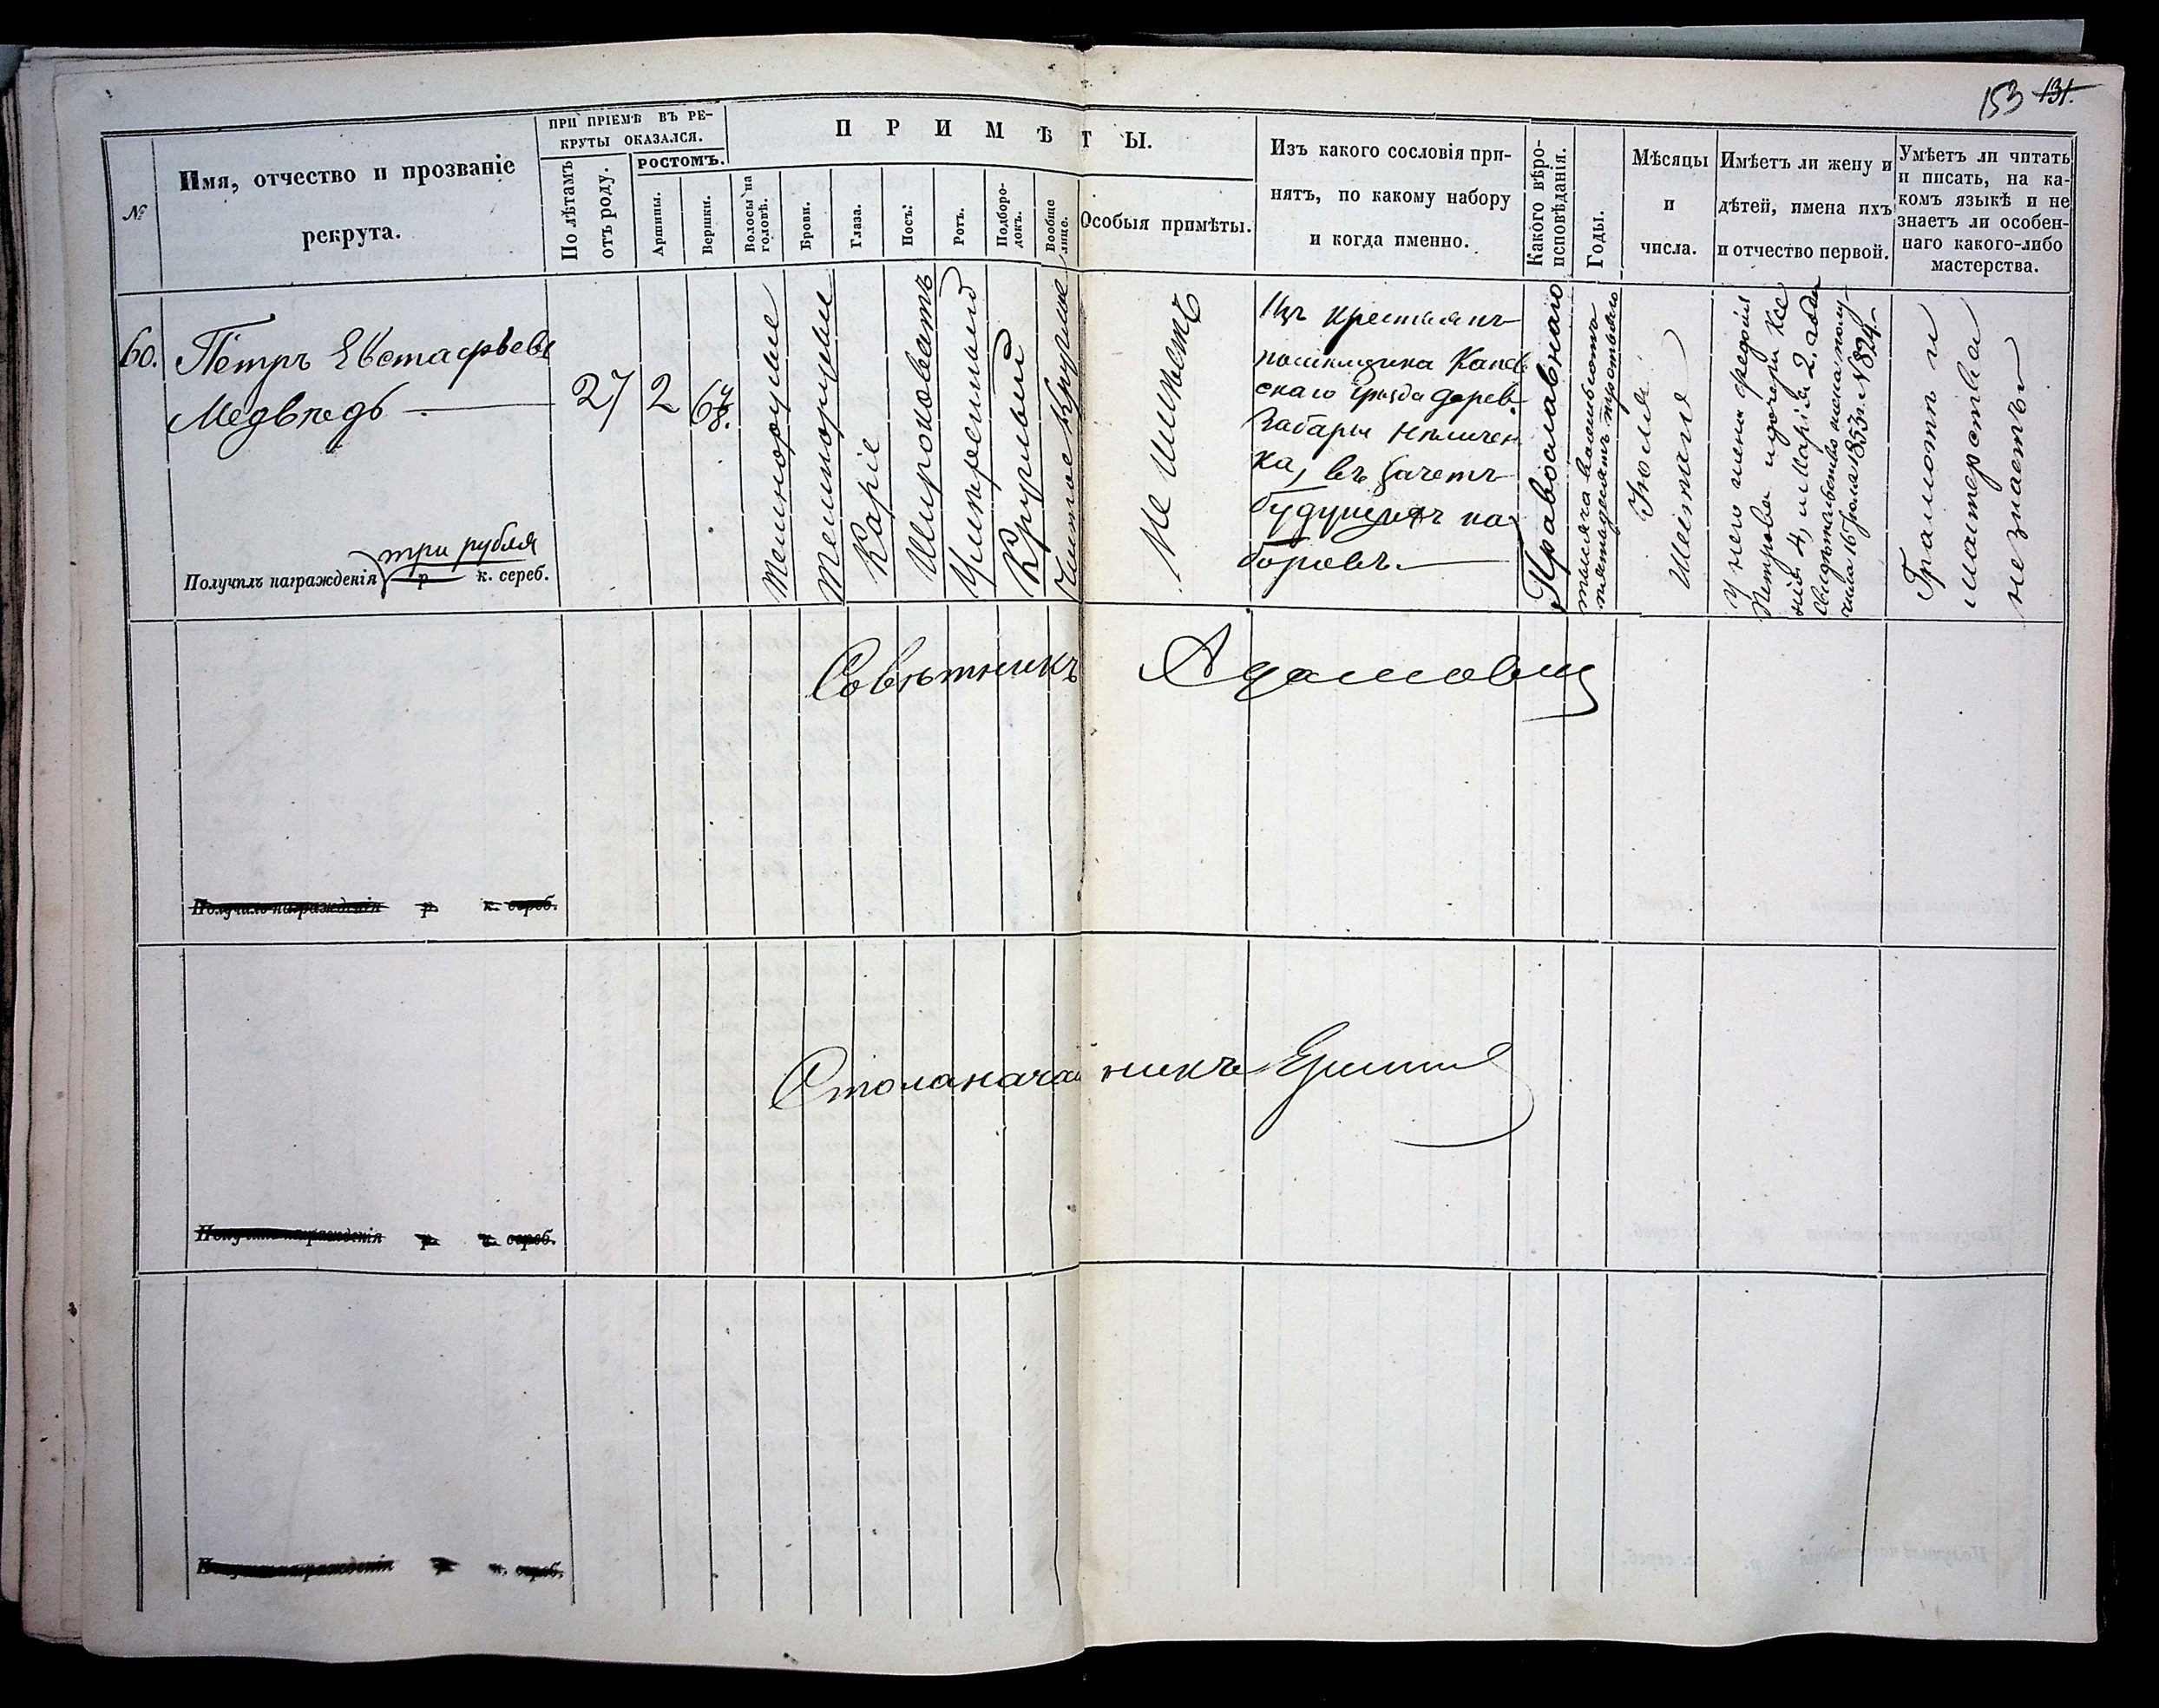 153 131.
№
Имя, отчество и прозваніе
рекрута.
ПРИ ПРІЕМѢ ВЪ РЕ-
КРУТЫ ОКАЗАЛСЯ.
По лѣтамъ
отъ роду.
РОСТОМЪ.
Аршины.
Вершки.
ПРИМѢТЫ.
Волосы на
головѣ.
Брови.
Глаза.
Носъ.
Ротъ.
Подборо-
докъ.
Вообще
лице.
Особыя примѣты.
Изъ какого сословія при-
нятъ, по какому набору
и когда именно.
Какого вѣро-
исповѣданія.
Годы.
Мѣсяцы
и
числа.
Имѣетъ ли жену и
дѣтей, имена ихъ
и отчество первой.
Умѣетъ ли читать
и писать, на ка-
комъ языкѣ и не
знаетъ ли особен-
наго какого-либо
мастерства.
60.
Петръ Евстафьевъ
Медвѣдь
три рубля
Получилъ награжденія р. к. сереб.
27
2
Темнорусые
Темнорусыя
Каріе
Широковатъ
Умѣренный
Круглый
Чистое круглое
Не имѣетъ
Изъ крестьянъ
помѣщика Канев
скаго уѣзда дерев.
въ зачетъ
будущихъ на
боровъ.
Православнаго
тысяча восемьсотъ
пятьдесятъ третьяго
Іюля
У него жена
Петрова и дочери Ксе
нія 4, и Марія 2.
свидѣтельство
числа 16 Іюля 1853 г. № 824.
Грамотѣ и
мастерства
не знаетъ.
Совѣтникъ Адамович
Получилъ награжденія р. к. сереб.
Столоначальникъ
Получилъ награжденія р. к. сереб.
Получилъ награжденія р. к. сереб.